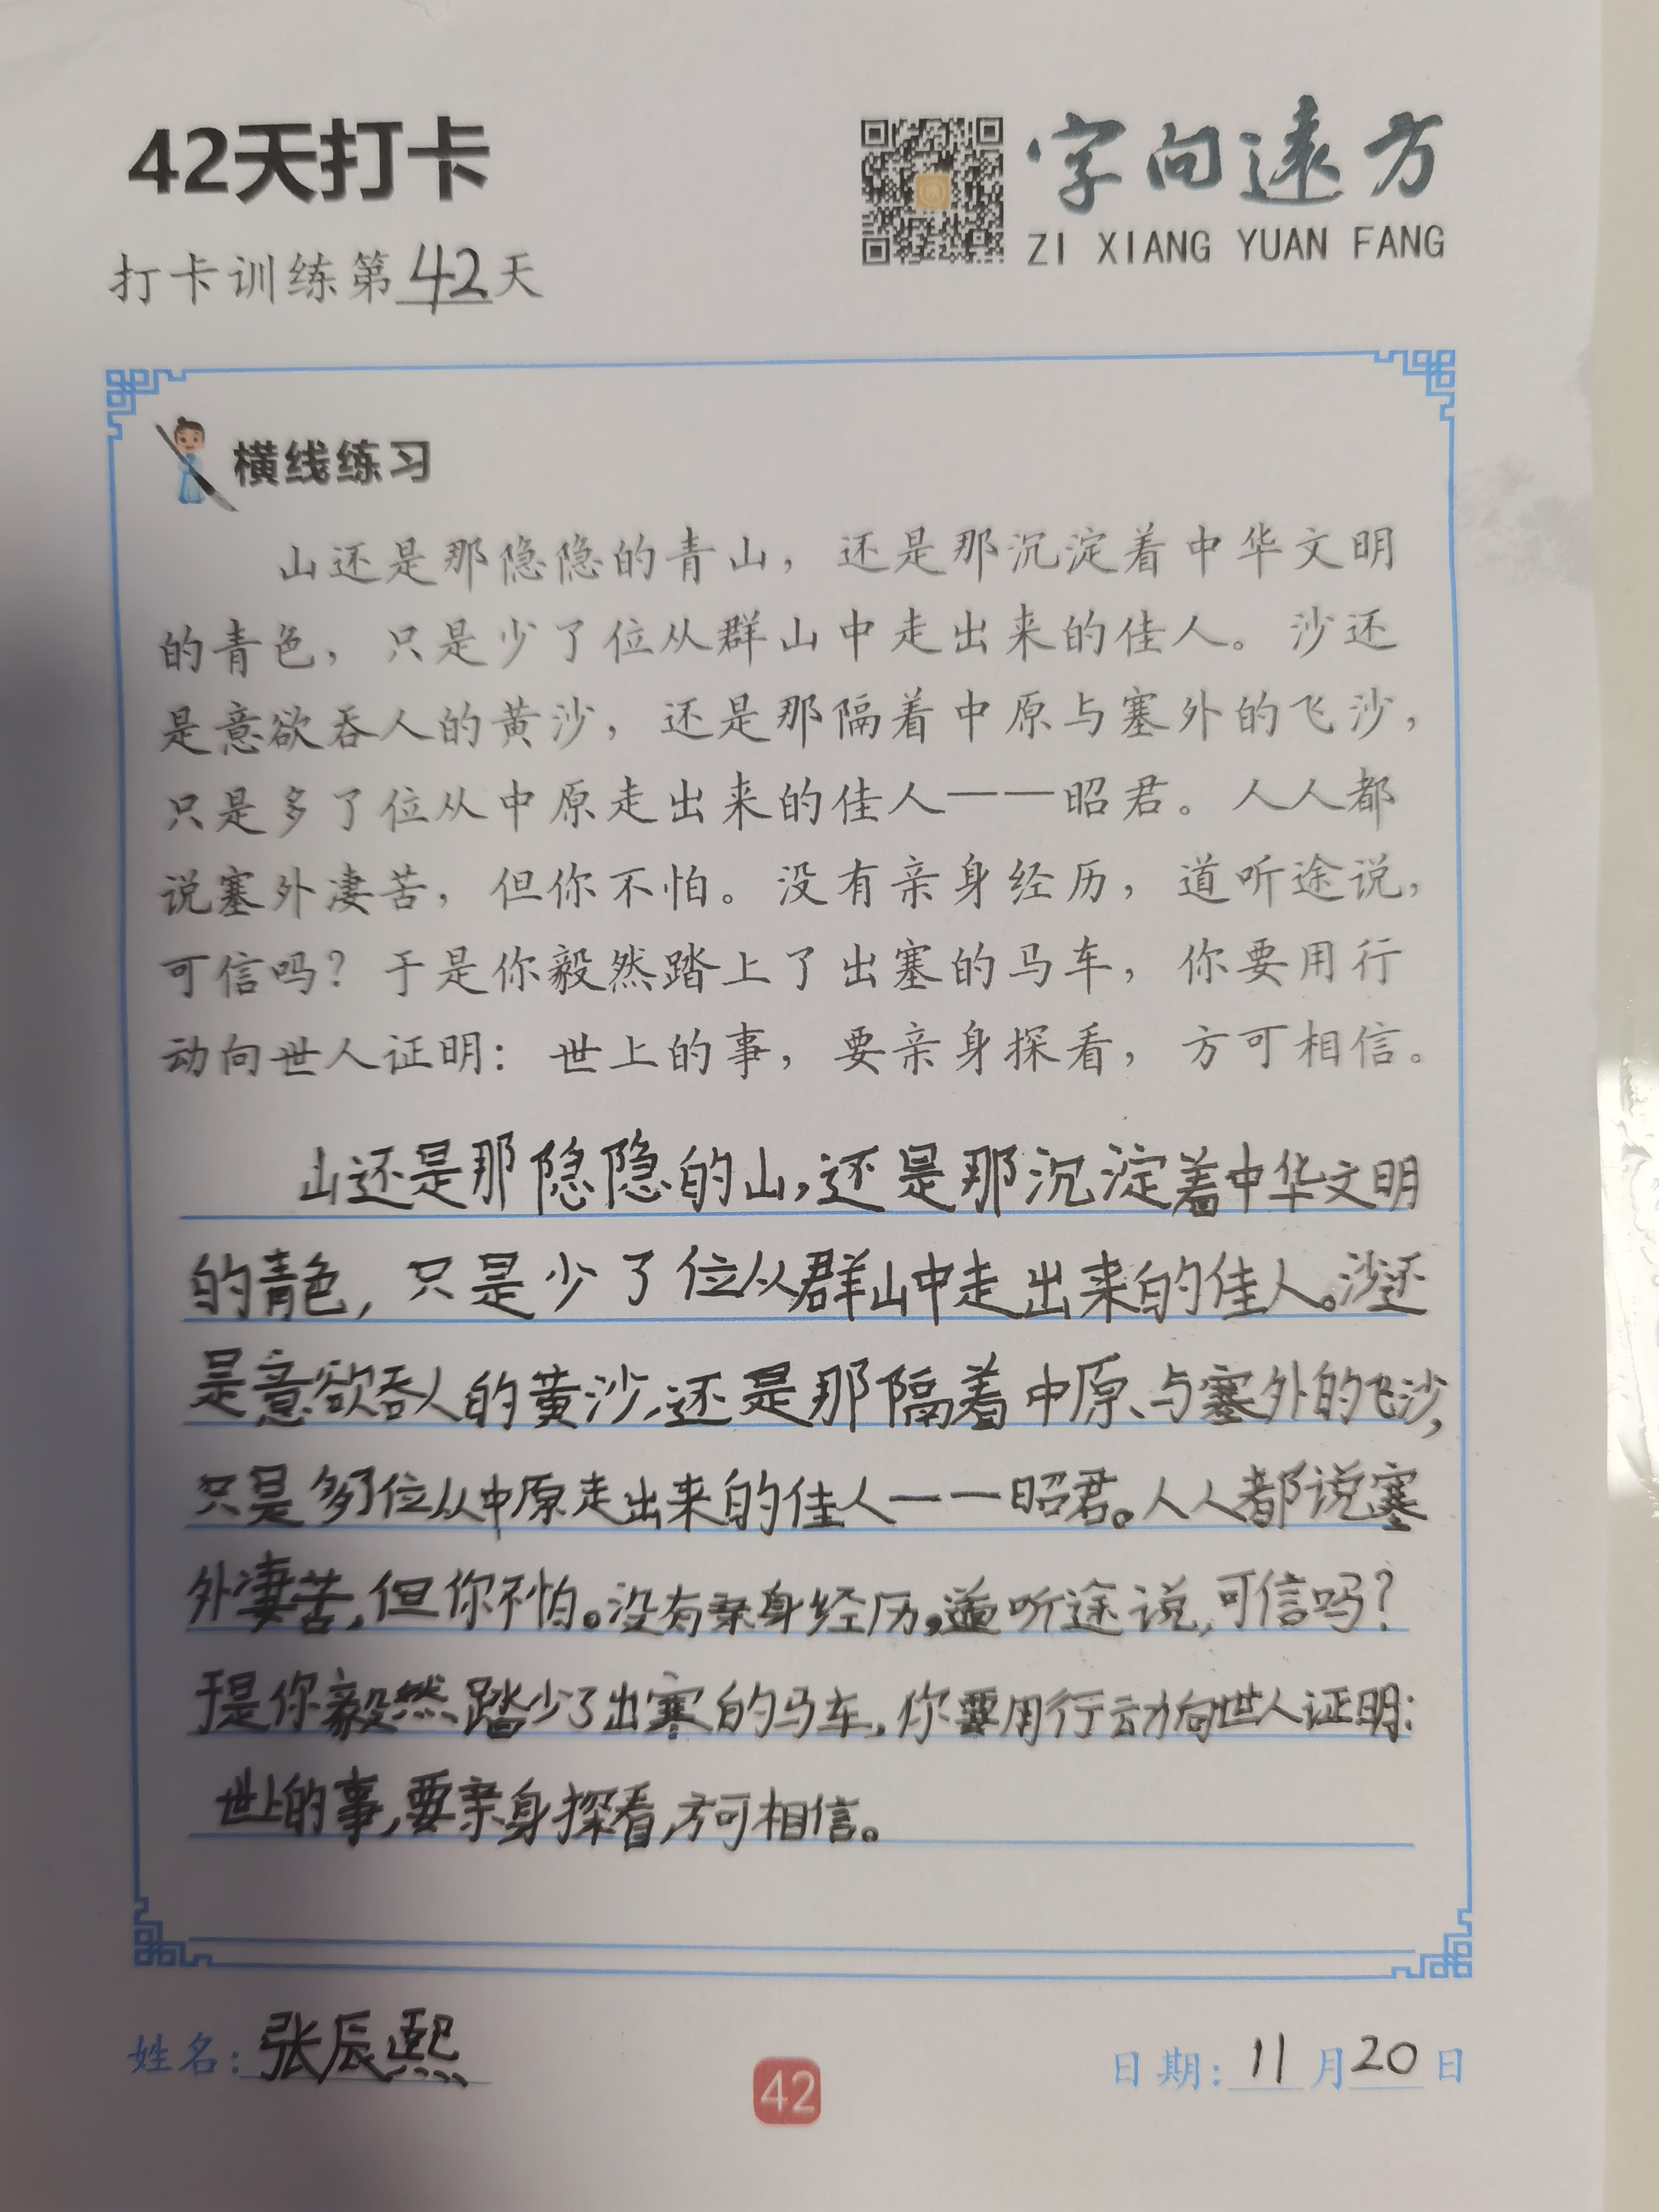 42天打卡
字向遠方
ZI XIANG YUAN FANG
打卡训练第42天
横线练习
山还是那隐隐的青山，还是那沉淀着中华文明
的青色，只是少了位从群山中走出来的佳人。沙还
是意欲吞人的黄沙，还是那隔着中原与塞外的飞沙，
只是多了位从中原走出来的佳人——昭君。人人都
说塞外凄苦，但你不怕。没有亲身经历，道听途说，
可信吗？于是你毅然踏上了出塞的马车，你要用行
动向世人证明：世上的事，要亲身探看，方可相信。
山还是那隐隐的山，还是那沉淀着中华文明
的青色，只是少了位从群山中走出来的佳人。沙还
是意欲吞人的黄沙，还是那隔着中原、与塞外的飞沙，
只是多了位从中原走出来的佳人——昭君。人人都说塞
外凄苦，但你不怕。没有亲身经历，道听途说，可信吗？
于是你毅然踏少了出寒的马车，你要用行动向世人证明：
世上的事，要亲身探看，方可相信。
姓名：张辰熙
42
日期：11月20日